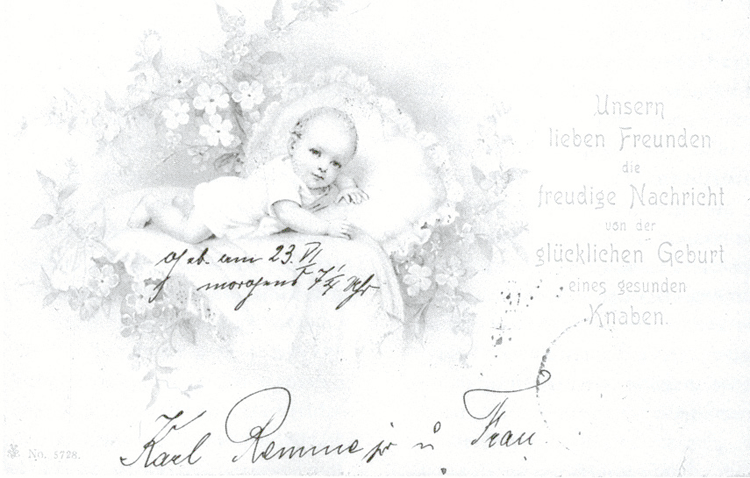 Unsern
lieben Freunden
die
freudige Nachricht
von der
glücklichen Geburt
eines gesunden
Knaben.
geb. am 23. VI
morgens 7 1/4 Uhr
Karl Remme jr u Frau
No. 5728.